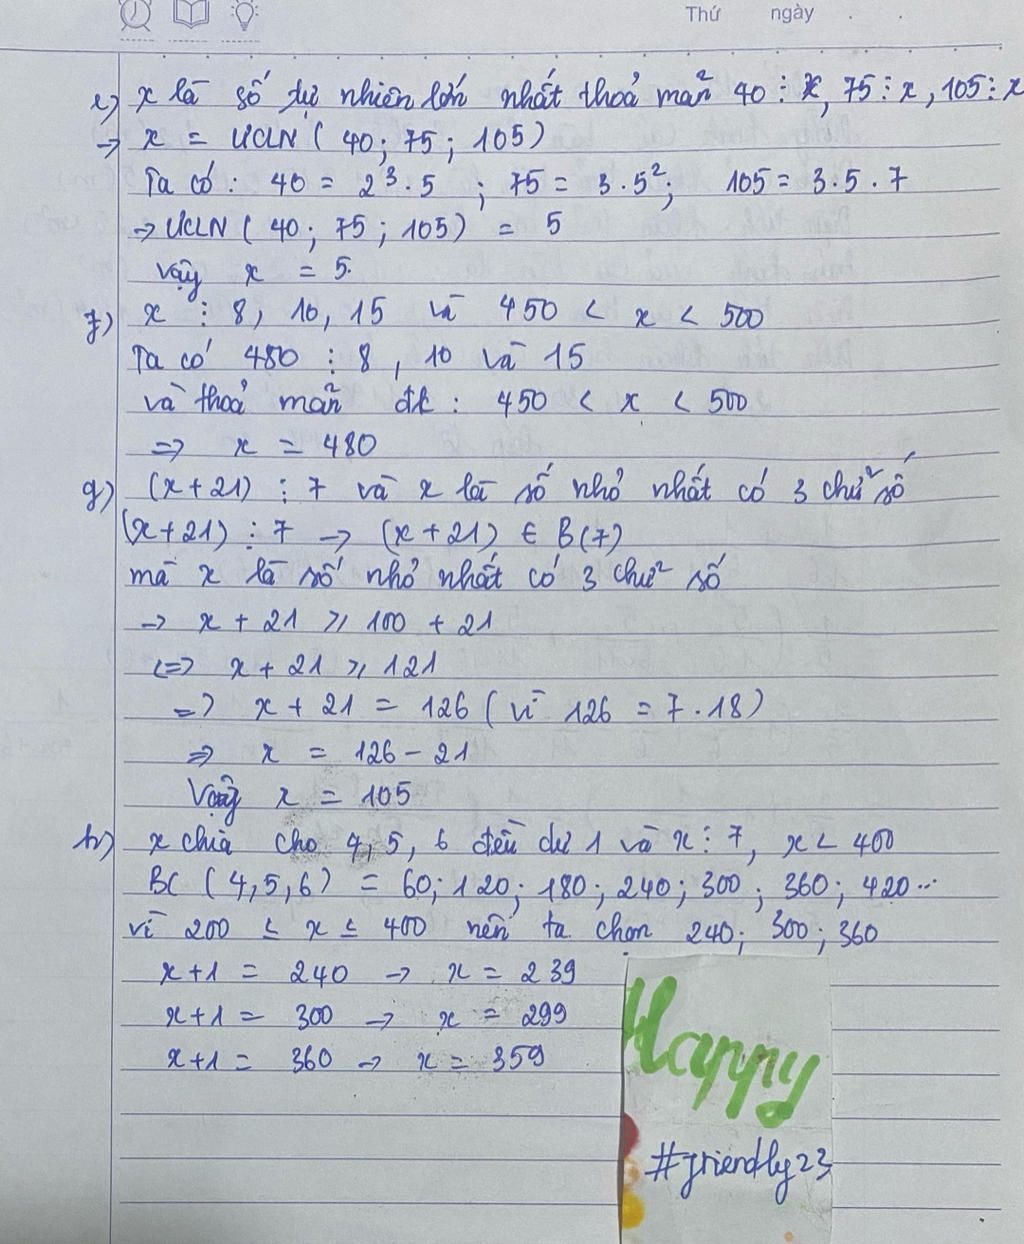 Thứ ngày . .
e) x là số tự nhiên lớn nhất thoả mãn 40 ⋮ x, 75 ⋮ x, 105 ⋮ x
→ x = ƯCLN ( 40; 75; 105)
Ta có: 40 = 2³ . 5 ; 75 = 3 . 5²; 105 = 3 . 5 . 7
→ ƯCLN ( 40; 75; 105) = 5
Vậy x = 5.
f) x ⋮ 8, 10, 15 và 450 < x < 500
Ta có 480 ⋮ 8, 10 và 15
và thoả mãn đk : 450 < x < 500
=> x = 480
g) (x+21) ⋮ 7 và x là số nhỏ nhất có 3 chữ số
(x+21) ⋮ 7 → (x+21) ∈ B(7)
mà x là số nhỏ nhất có 3 chữ số
→ x + 21 ⩾ 100 + 21
<=> x + 21 ⩾ 121
=> x + 21 = 126 ( vì 126 = 7 . 18)
=> x = 126 - 21
Vậy x = 105
h) x chia cho 4, 5, 6 đều dư 1 và x ⋮ 7, x < 400
BC ( 4, 5, 6) = 60; 120; 180; 240; 300; 360; 420...
vì 200 ≤ x ≤ 400 nên ta chọn 240; 300; 360
x+1 = 240 → x = 239
x+1 = 300 → x = 299
x+1 = 360 → x = 359
Happy
#friendly23